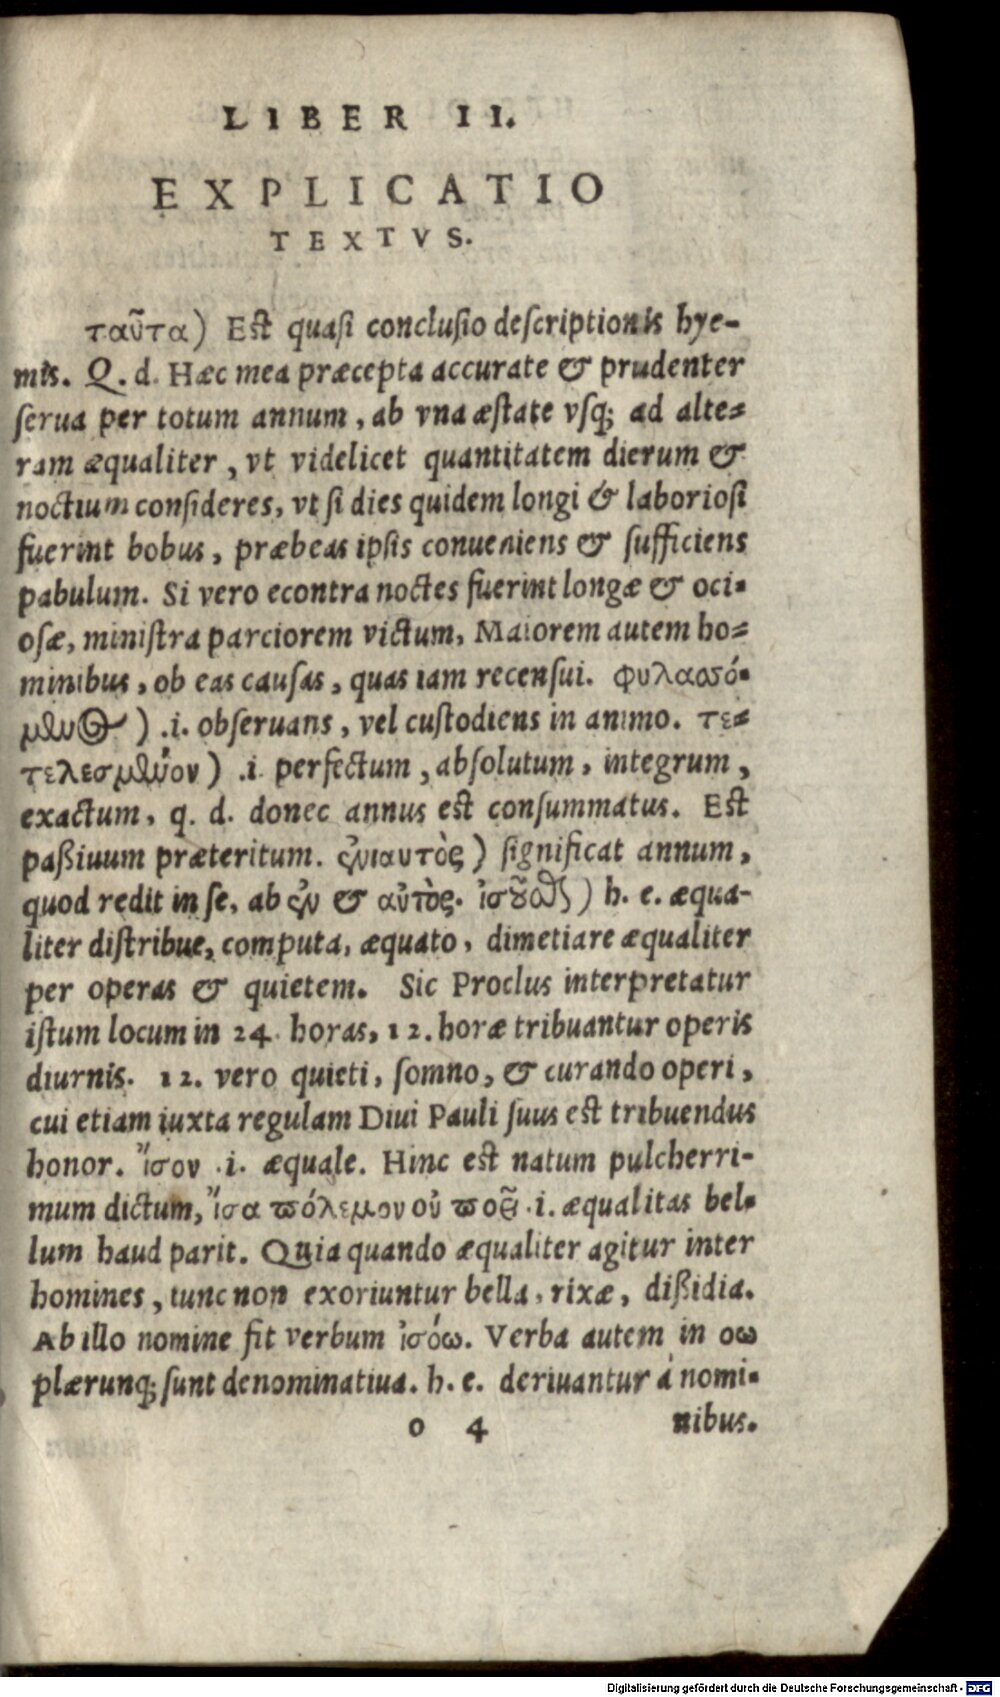 LIBER II.
EXPLICATIO
TEXTVS.
ταῦτα) Est quasi conclusio descriptionis hye-
mis. Q. d. Hæc mea præcepta accurate & prudenter
serua per totum annum, ab vna æstate vsq; ad alte-
ram æqualiter, vt videlicet quantitatem dierum &
noctium consideres, vt si dies quidem longi & laboriosi
fuerint bobus, præbeas ipsis conueniens & sufficiens
pabulum. Si vero econtra noctes fuerint longæ & oci-
osæ, ministra parciorem victum, Maiorem autem ho-
minibus, ob eas causas, quas iam recensui. φυλασσό-
μϑυος) .i. obseruans, vel custodiens in animo. τε-
τελεσμένον) .i. perfectum, absolutum, integrum,
exactum, q. d. donec annus est consummatus. Est
paßiuum præteritum. ἐνιαυτὸς) significat annum,
quod redit in se, ab ἐν & αὐτὸς. ἰσοῦσθαι) h. e. æqua-
liter distribue, computa, æquato, dimetiare æqualiter
per operas & quietem. Sic Proclus interpretatur
istum locum in 24. horas, 12. horæ tribuantur operis
diurnis. 12. vero quieti, somno, & curando operi,
cui etiam iuxta regulam Diui Pauli suus est tribuendus
honor. ἴσον .i. æquale. Hinc est natum pulcherri-
mum dictum, ἴσα πόλεμον οὐ ποεῖ .i. æqualitas bel-
lum haud parit. Quia quando æqualiter agitur inter
homines, tunc non exoriuntur bella, rixæ, dißidia.
Ab illo nomine fit verbum ἰσόω. Verba autem in οω
plærunq; sunt denominatiua. h. e. deriuantur à nomi-
o 4 nibus.
Digitalisierung gefördert durch die Deutsche Forschungsgemeinschaft - DFG